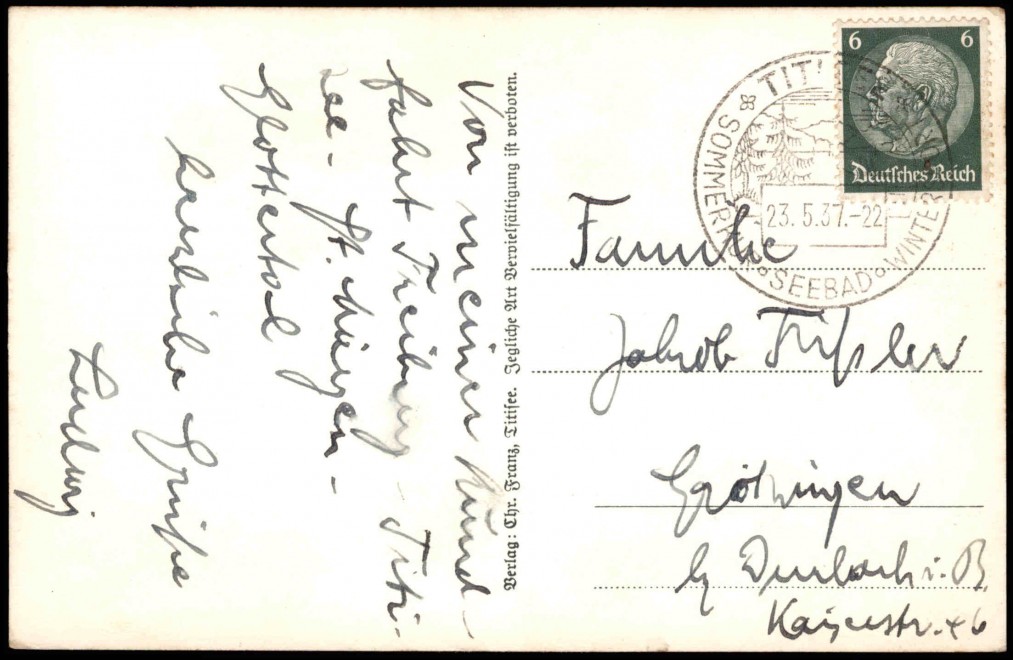 Von meiner Rund-
fahrt Freiburg - Titi-
see - St. Märgen -
Glottertal
herzliche Grüße
Ludwig
Verlag: Chr. Franz, Titisee. Jegliche Art Vervielfältigung ist verboten.
6 6
Deutsches Reich
TITI
SOMMER
23.5.37.-22
SEEBAD
WINTER
Familie
Jakob
Grötzingen
b/ Durlach i. B.
Kaiserstr. 46